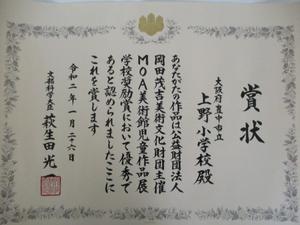 賞状
大阪府豊中市立
上野小学校殿
あなたがたの作品は公益財団法人
岡田茂吉美術文化財団主催
MOA美術館児童作品展
学校奨励賞において優秀で
あると認められましたここに
これを賞します
令和二年一月二十六日
文部科学大臣
萩生田光一